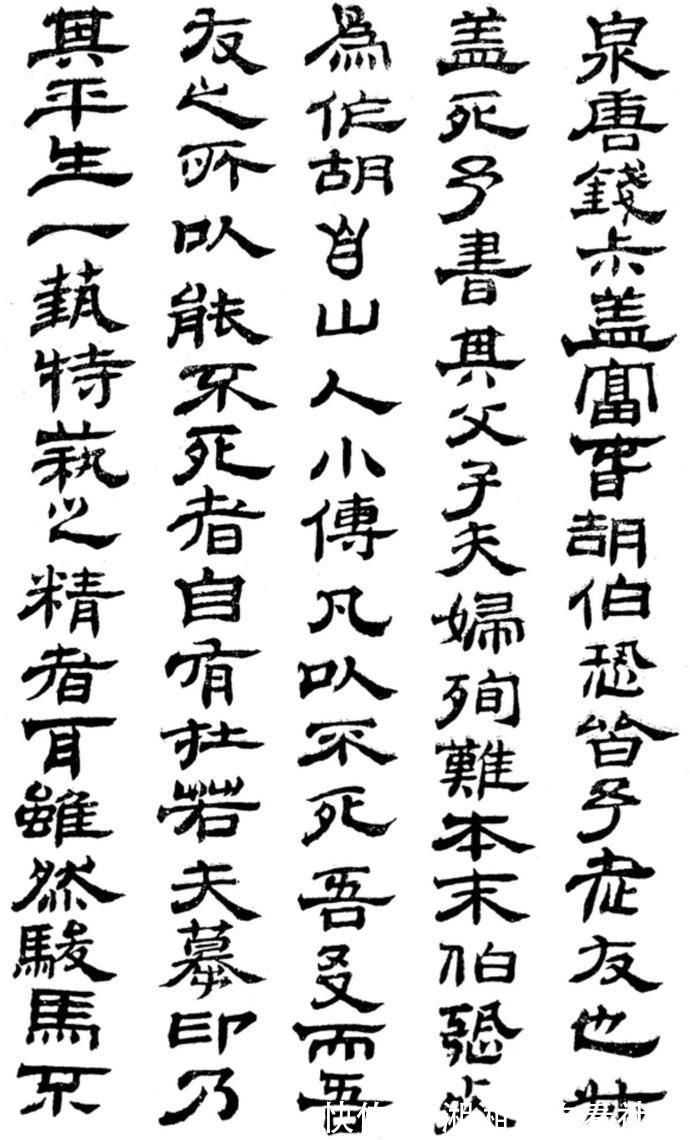 泉唐錢尗盖富春胡伯恐皆予老友也尗
盖死予書其父子夫婦殉難本末伯恐
為作胡自山人小傳凡㠯不死吾㕛而吾
友之所㠯能不死者自有在若夫摹印乃
其平生一藝特藝之精者耳雖然駿馬不